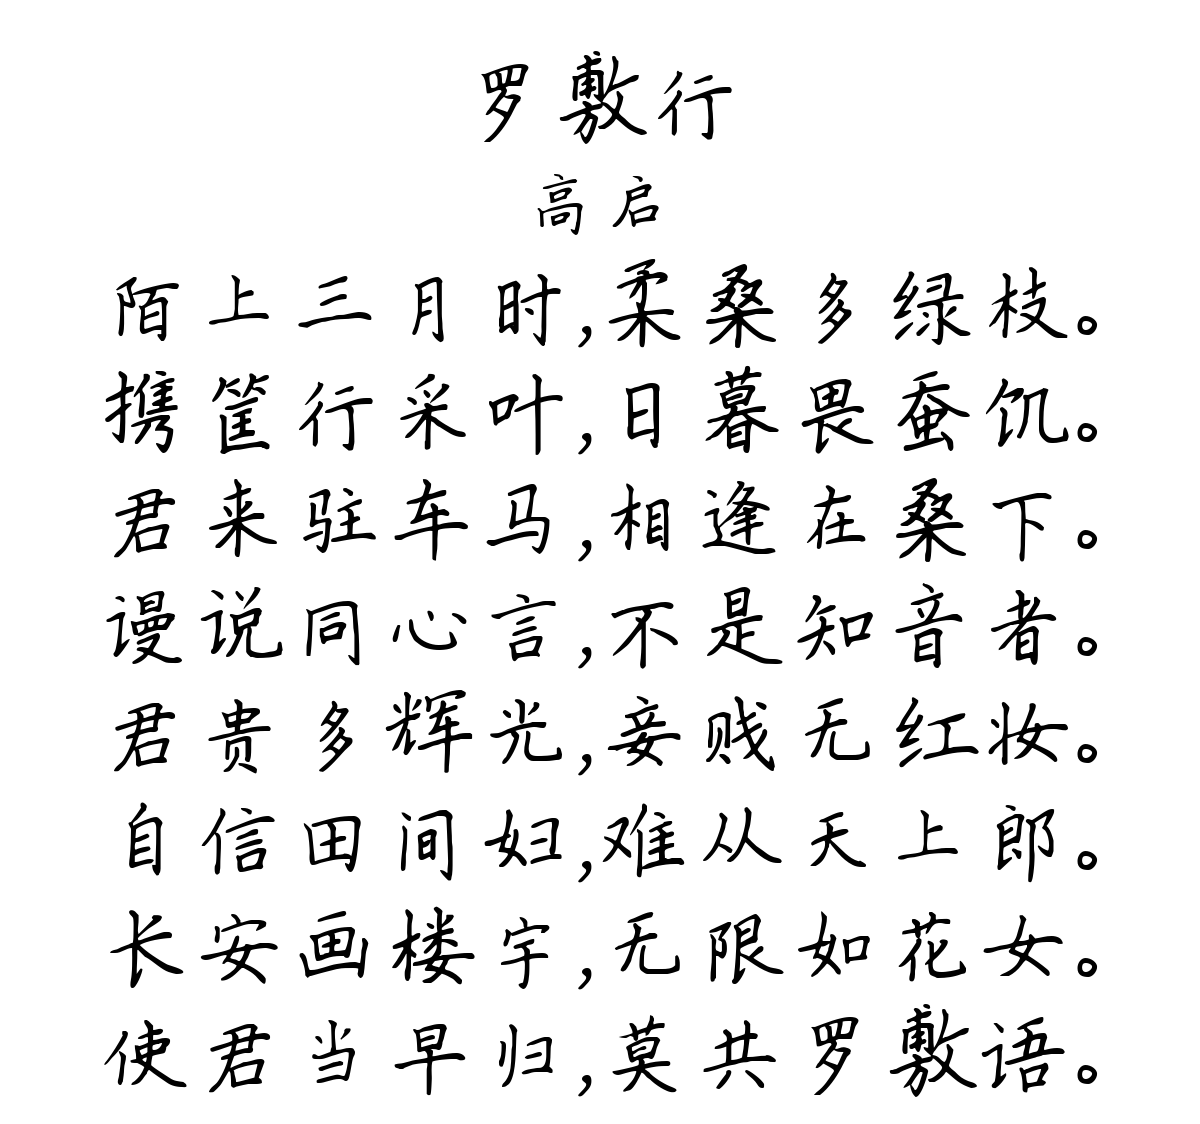 罗敷行
高启
陌上三月时,柔桑多绿枝。
携筐行采叶,日暮畏蚕饥。
君来驻车马,相逢在桑下。
谩说同心言,不是知音者。
君贵多辉光,妾贱无红妆。
自信田间妇,难从天上郎。
长安画楼宇,无限如花女。
使君当早归,莫共罗敷语。